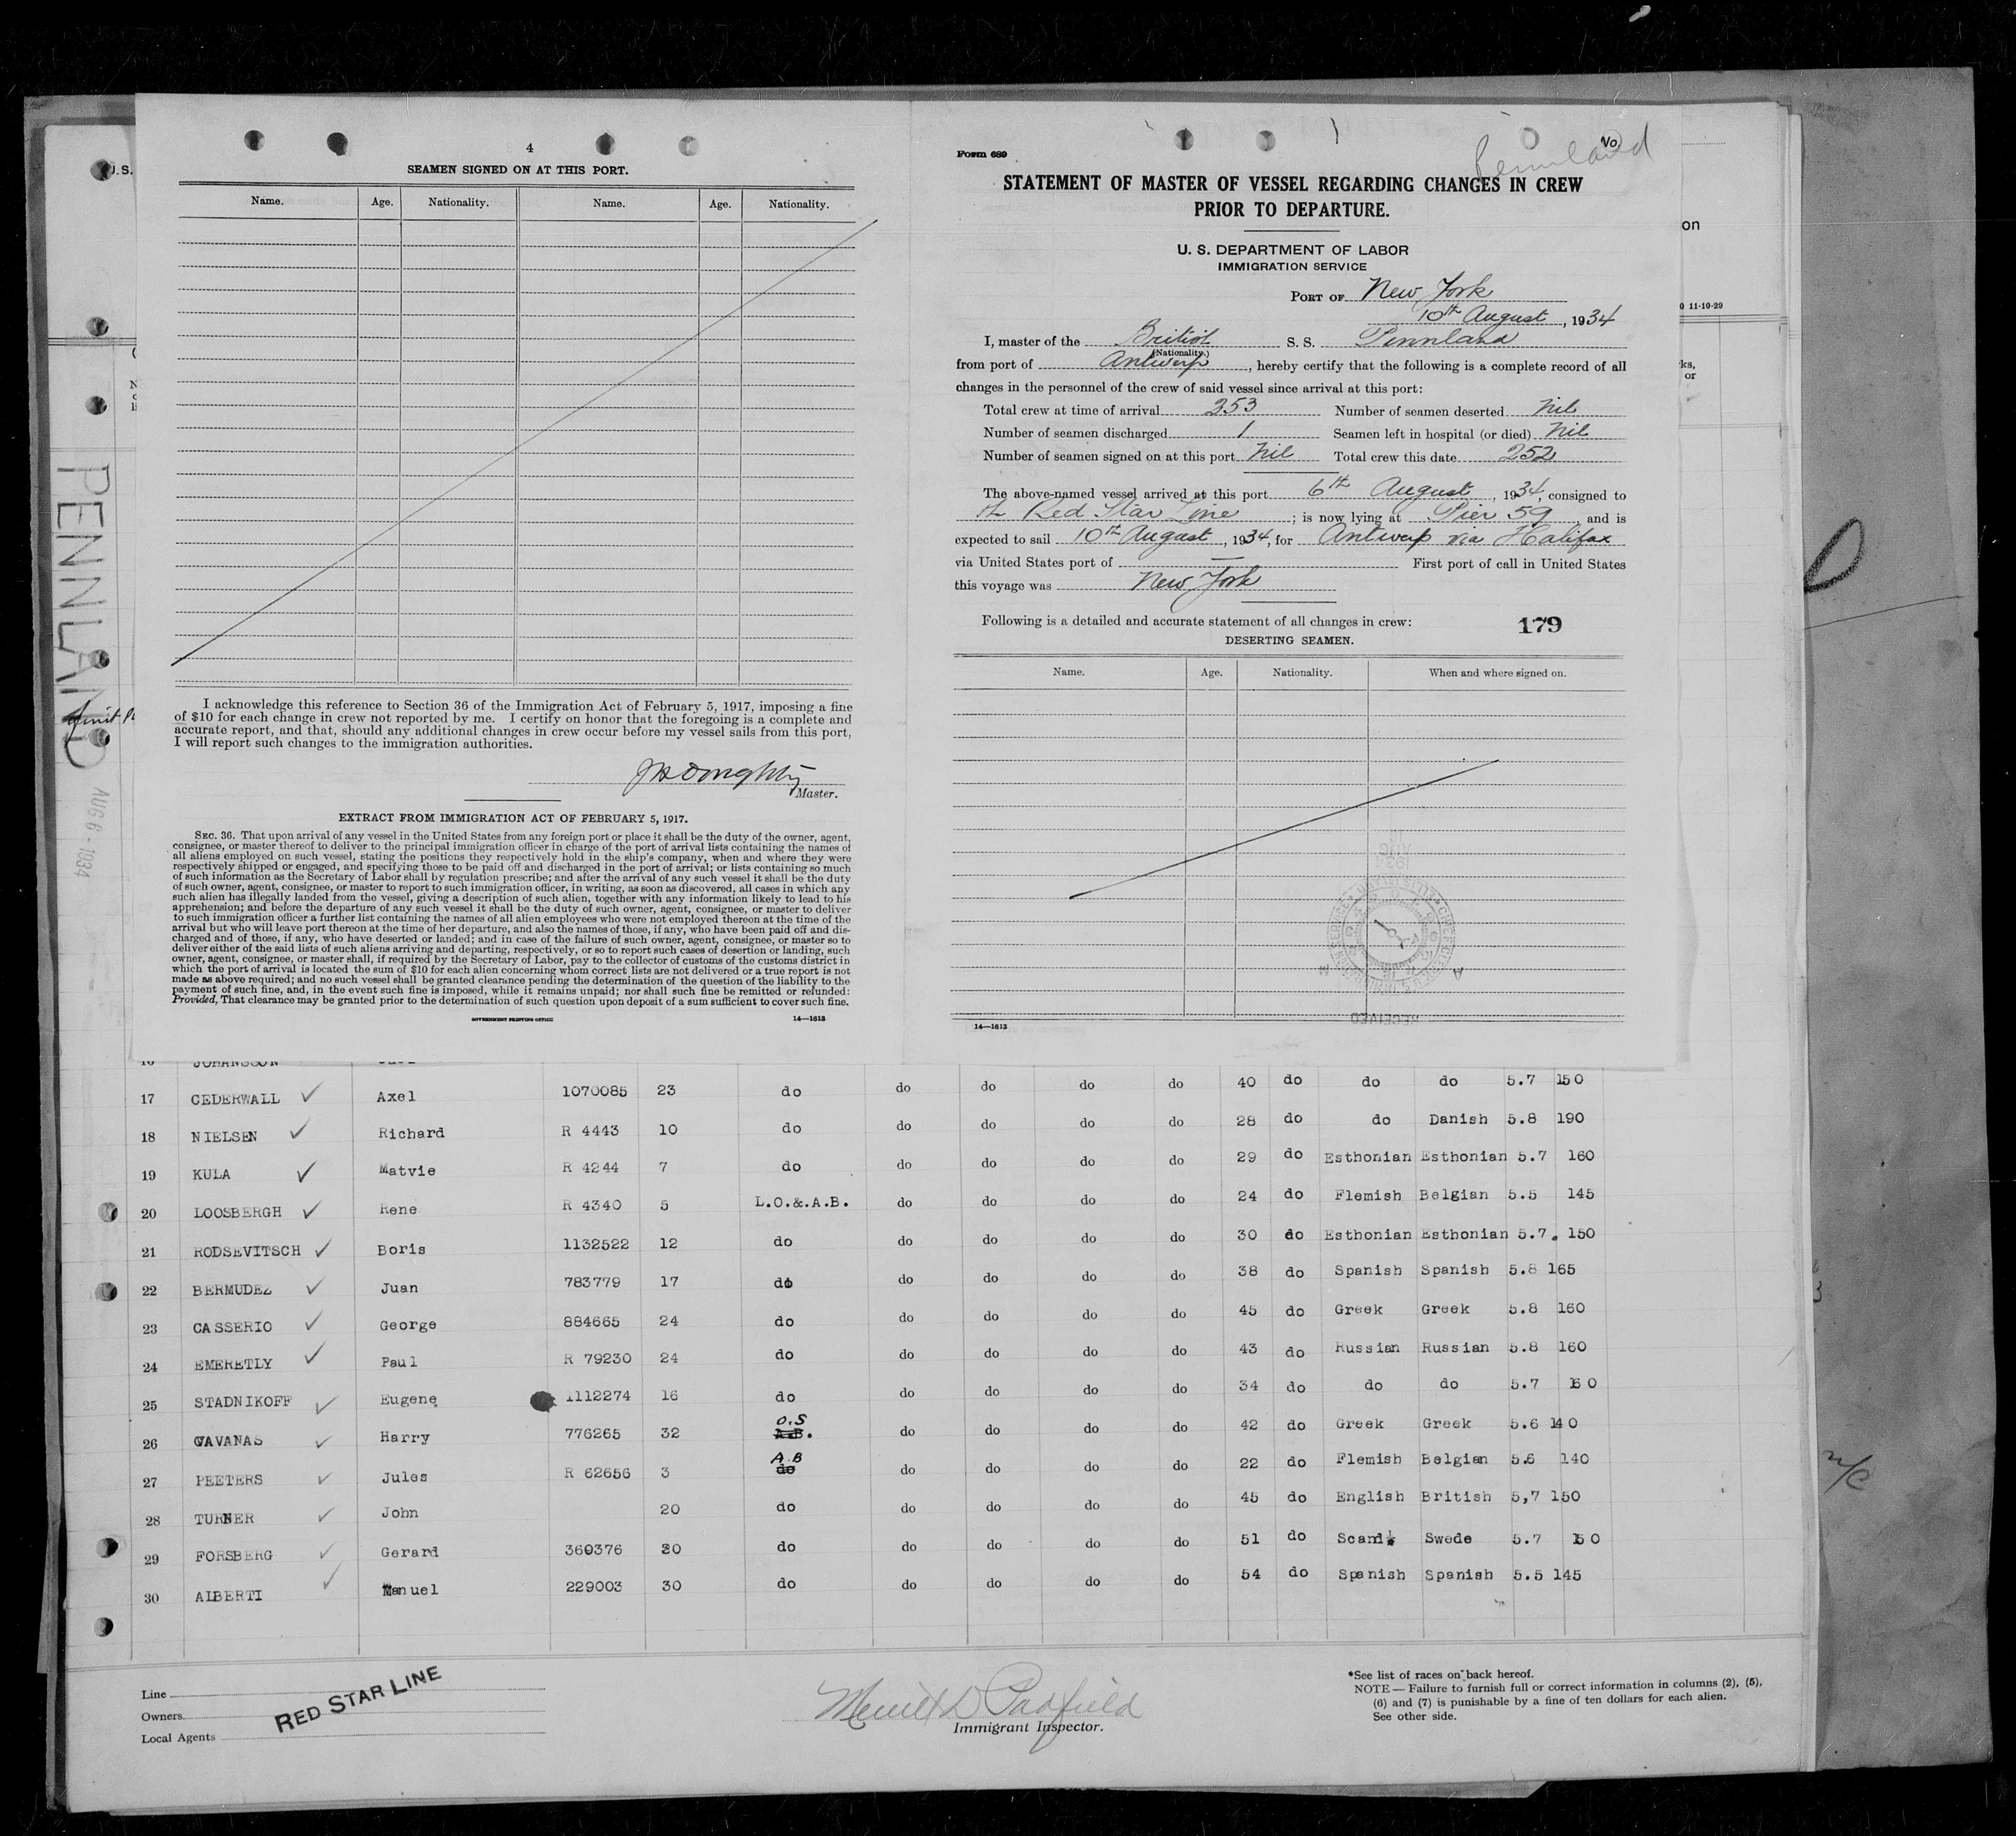 4
SEAMEN SIGNED ON AT THIS PORT.
Name. Age. Nationality. Name. Age. Nationality.
I acknowledge this reference to Section 36 of the Immigration Act of February 5, 1917, imposing a fine
of $10 for each change in crew not reported by me. I certify on honor that the foregoing is a complete and
accurate report, and that, should any additional changes in crew occur before my vessel sails from this port,
I will report such changes to the immigration authorities.
Master.
EXTRACT FROM IMMIGRATION ACT OF FEBRUARY 5, 1917.
SEC. 36. That upon arrival of any vessel in the United States from any foreign port or place it shall be the duty of the owner, agent,
consignee, or master thereof to deliver to the principal immigration officer in charge of the port of arrival lists containing the names of
all aliens employed on such vessel, stating the positions they respectively hold in the ship's company, when and where they were
respectively shipped or engaged, and specifying those to be paid off and discharged in the port of arrival; or lists containing so much
of such information as the Secretary of Labor shall by regulation prescribe; and after the arrival of any such vessel it shall be the duty
of such owner, agent, consignee, or master to report to such immigration officer, in writing, as soon as discovered, all cases in which any
such alien has illegally landed from the vessel, giving a description of such alien, together with any information likely to lead to his
apprehension; and before the departure of any such vessel it shall be the duty of such owner, agent, consignee, or master to deliver
to such immigration officer a further list containing the names of all alien employees who were not employed thereon at the time of the
arrival but who will leave port thereon at the time of her departure, and also the names of those, if any, who have been paid off and dis-
charged and of those, if any, who have deserted or landed; and in case of the failure of such owner, agent, consignee, or master so to
deliver either of the said lists of such aliens arriving and departing, respectively, or so to report such cases of desertion or landing, such
owner, agent, consignee, or master shall, if required by the Secretary of Labor, pay to the collector of customs of the customs district in
which the port of arrival is located the sum of $10 for each alien concerning whom correct lists are not delivered or a true report is not
made as above required; and no such vessel shall be granted clearance pending the determination of the question of the liability to the
payment of such fine, and, in the event such fine is imposed, while it remains unpaid; nor shall such fine be remitted or refunded:
Provided, That clearance may be granted prior to the determination of such question upon deposit of a sum sufficient to cover such fine.
GOVERNMENT PRINTING OFFICE 14—1613
Form 689 No.
Pennland
STATEMENT OF MASTER OF VESSEL REGARDING CHANGES IN CREW
PRIOR TO DEPARTURE.
U. S. DEPARTMENT OF LABOR
IMMIGRATION SERVICE
PORT OF New York
10th August, 1934
I, master of the British S. S. Pennland
(Nationality.)
from port of Antwerp, hereby certify that the following is a complete record of all
changes in the personnel of the crew of said vessel since arrival at this port:
Total crew at time of arrival 253 Number of seamen deserted Nil
Number of seamen discharged 1 Seamen left in hospital (or died) Nil
Number of seamen signed on at this port Nil Total crew this date 252
The above-named vessel arrived at this port 6th August, 1934, consigned to
the Red Star Line; is now lying at Pier 59, and is
expected to sail 10th August, 1934, for Antwerp via Halifax
via United States port of — First port of call in United States
this voyage was New York
Following is a detailed and accurate statement of all changes in crew:
179
DESERTING SEAMEN.
Name. Age. Nationality. When and where signed on.
RECEIVED
14—1613
U.S.
on
11-10-29
ks,
or
PENNLAND
AUG 6 - 1934
16 JOHANSSON
17 CEDERWALL Axel 1070085 23 do do do do do 40 do do do 5.7 150
18 NIELSEN Richard R 4443 10 do do do do do 28 do do Danish 5.8 190
19 KULA Matvie R 4244 7 do do do do do 29 do Esthonian Esthonian 5.7 160
20 LOOSBERGH Rene R 4340 5 L.O.&.A.B. do do do do 24 do Flemish Belgian 5.5 145
21 RODSEVITSCH Boris 1132522 12 do do do do do 30 do Esthonian Esthonian 5.7. 150
22 BERMUDEZ Juan 783779 17 do do do do do 38 do Spanish Spanish 5.8 165
23 CASSERIO George 884665 24 do do do do do 45 do Greek Greek 5.8 160
24 EMERETLY Paul R 79230 24 do do do do do 43 do Russian Russian 5.8 160
25 STADNIKOFF Eugene 1112274 16 do do do do do 34 do do do 5.7 160
O.S
26 GAVANAS Harry 776265 32 A.B. do do do do 42 do Greek Greek 5.6 140
A.B
27 PEETERS Jules R 62656 3 do do do do do 22 do Flemish Belgian 5.6 140
28 TURNER John 20 do do do do do 45 do English British 5,7 150
29 FORSBERG Gerard 360376 30 do do do do do 51 do Scand. Swede 5.7 150
30 ALBERTI Manuel 229003 30 do do do do do 54 do Spanish Spanish 5.5 145
Line
Owners
Local Agents
RED STAR LINE
Merrill D Padfield
Immigrant Inspector.
*See list of races on back hereof.
NOTE — Failure to furnish full or correct information in columns (2), (5),
(6) and (7) is punishable by a fine of ten dollars for each alien.
See other side.